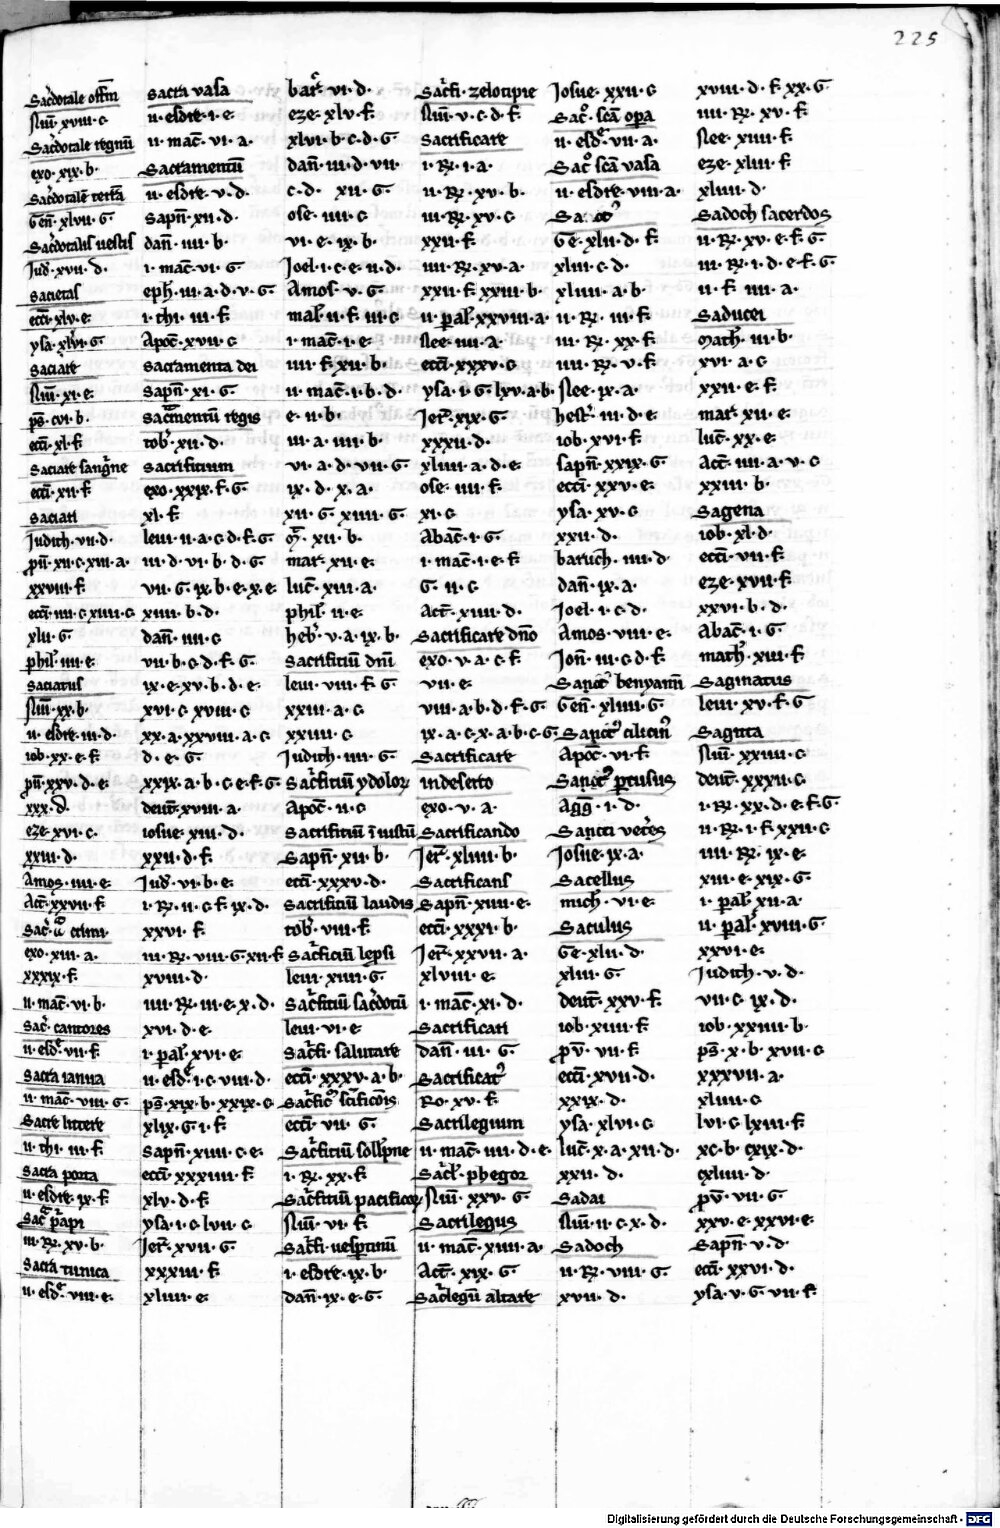 225
Sac̄dotale offm̄
Nūi · xviii · c
Sacdotale regnū
exo · xix · b ·
Sac̄dotalē terrā
Gen̄ · xlvii · G
Sac̄dotalis uestis
Iud̄ · xvii · d ·
Sacietas
eccī · xlv · e ·
ysa · xlvi · G
Saciare
Nūi · xi · e ·
ps̄ · cvi · b ·
eccī · xl · f
Saciare sangⁱne
eccī · xii · f
Saciari
Iudith · vii · d ·
ꝓū · xii · c · xiii · a ·
xxviii · f
eccī · iiii · c xiiii · c
xlii · G
phil̄ · iiii · e ·
Saciatus
Nūi · xx · b ·
ii · esdre · iii · d ·
iob · xx · e · f
ꝓū · xxv · d · e ·
xxx · d ·
eze · xvi · c ·
xxiii · d ·
Amos · iiii · e ·
Act̄ · xxvii · f
exo · xiii · a ·
xxxix · f
ii · mac̄ · vi · b ·
Sac̄ · cantores
ii · esdᵉ · vii · f
Sacra ianua
ii · mac̄ · viii · G ·
Sacre littere
ii · thi · iii · f
Sacra porta
ii · esdre · ix · f
iii · Rꝫ · xv · b ·
Sacra tunica
ii · esdᵉ · viii · e ·
sacra vasa
ii · esdre · i · e ·
ii · mac̄ · vi · a ·
Sacramentū
ii · esdre · v · d ·
Sapn̄ · xii · d ·
dan̄ · iiii · b ·
i · mac̄ · vi · G ·
eph̄ · iii · a · d · v · G
i · thi · iii · f
Apoc̄ · xvii · c
sacramenta dei
Sapn̄ · xi · G ·
Sac̄mentū regis
tob̄ · xii · d ·
Sacrificium
exo · xxix · f · G
xl · f
leui · ii · a · c · d · f · G
iii · d · vi · b · d · G
vii · G · ix · b · e · x · e
xiii · b · d ·
dan̄ · iiii · c
vii · b · c · d · f · G
ix · e · xv · b · d · e ·
xvi · c · xviii · c
xx · a · xxviii · a · c
d · e · G
xxix · a · b · c · e · f · G
deut̄ · xviii · a ·
iosue · xiii · d ·
xxii · d · f
Iud̄ · vi · b · e ·
i · Rꝫ · ii · c · f · ix · d ·
xxvi · f
iii · Rꝫ · viii · G · xii · f
xviii · d ·
iiii · Rꝫ · iii · e · x · d ·
xvi · d · e ·
i · pal̄ · xvi · e ·
ii · esdᵉ · i · c · viii · d ·
ps̄ · xix · b · xxix · c
xlix · G · i · f
Sapn̄ · xiiii · c · e ·
eccī · xxxiiii · f
xlv · d · f
ysa · i · c · lvii · c
Ier̄ · xvii · G ·
xxxiii · f
xliiii · e ·
bar̄ · vi · d ·
eze · xlv · f
xlvi · b · c · d · G ·
dan̄ · iii · d · vii ·
c · d · xii · G
ose · iiii · c
vi · e · ix · b ·
Ioel · i · c · e · ii · d ·
Amos · v · G ·
mal̄ · ii · f · iii · c
i · mac̄ · i · e
iiii · f · xii · b ·
ii · mac̄ · i · b · d ·
e · ii · b ·
iii · a · iiii · b ·
vi · a · d · vii · G
ix · d · x · a ·
xii · G · xiiii · G
xii · b ·
mar̄ · xii · e ·
luc̄ · xiii · a ·
phil̄ · ii · e ·
heb̄ · v · a · ix · b ·
Sacrificiū dn̄i
leui · viii · f · G
xxiii · a · c
xxiiii · c
Iudith · iiii · G
Sac̄ficiū ydoloꝝ
Apoc̄ · ii · c
Sacrificiū iniustū
Sapn̄ · xii · b ·
eccī · xxxv · d ·
Sacrificiū laudis
tob̄ · viii · f
Sac̄ficiū lepsi
leui · xiiii · G
Sac̄ficiū sac̄dotū
leui · vi · e
Sac̄fi · salutare
eccī · xxxv · a · b ·
eccī · vii · G
Sac̄ficiū sollⁱpne
i · Rꝫ · xx · f
Sac̄ficiū pacificoꝝ
Nūi · vi · f
Sac̄fi · uesp̄tinū
i · esdre · ix · b
dan̄ · ix · e · G ·
Sac̄fi · zelotipie
Nūi · v · c · d · f
Sacrificare
i · Rꝫ · i · a ·
ii · Rꝫ · xv · b ·
iii · Rꝫ · xv · c
xxii · f
iiii · Rꝫ · xv · a ·
xxii · f xxiii · b ·
ii · pal̄ · xxviii · a
Nee · iiii · a ·
eccī · xxxv · c
ysa · i · G · lxv · a · b
Ier̄ · xix · G
xxxii · d ·
xliiii · a · d · e ·
ose · iiii · f
xi · c
Abac̄ · i · G
i · mac̄ · i · e · f
G · ii · c
Act̄ · xiiii · d ·
Sacrificare dn̄o
exo · v · a · c · f
vii · e ·
viii · a · b · d · f · G
ix · a · c · x · a · b · c · G
Sacrificare
in deserto
exo · v · a ·
Sacrificando
Ier̄ · xliiii · b ·
Sacrificans
Sapn̄ · xiiii · e ·
eccī · xxxi · b ·
Ier̄ · xxvii · a ·
xlviii · e ·
i · mac̄ · xi · d ·
Sacrificari
dan̄ · iii · G
Sacrificat̄
Ro · xv · f
Sacrilegium
ii · mac̄ · iiii · d · e ·
Sac̄l · phegor
Nūi · xxv · G
Sacrilegus
ii · mac̄ · xiiii · a ·
Act̄ · xix · G
Sac̄legū altare
Iosue · xxii · c
Sac̊ · sc̄a opa
ii · esdᵉ · vii · a ·
Sac̊ · sc̄a vasa
ii · esdre · viii · a ·
Ge · xlii · d · f
xliii · c · d ·
xliiii · a · b ·
ii · Rꝫ · iii · f
iii · Rꝫ · xx · f
iiii · Rꝫ · v · f
Nee · ix · a ·
hest̄ · iii · d · e
iob · xvi · f
sapn̄ · xxix · G
eccī · xxv · e ·
ysa · xv · c
xxii · d ·
baruch · iiii · d ·
dan̄ · ix · a ·
Ioel · i · c · d ·
Amos · viii · e ·
Ion̄ · iii · c · d · f
Gen̄ · xliiii · G
Apoc̄ · vi · f
Agḡ · i · d ·
Sancti vet̄es
Iosue · ix · a ·
Sacellus
mich̄ · vi · e
Saculus
Ge · xlii · d ·
xliii · G
deut̄ · xxv · f
iob · xiiii · f
ꝓv̄ · vii · f
eccī · xvii · d ·
xxix · d ·
ysa · xlvi · c
luc̄ · x · a · xii · d ·
xxii · d ·
Sadai
Nūi · ii · c · x · d ·
Sadoch
ii · Rꝫ · viii · G
xvii · d ·
xviii · d · f · xx · G
iiii · Rꝫ · xv · f
Nee · xiiii · f
eze · xliii · f
xliiii · d ·
Sadoch sacerdos
ii · Rꝫ · xv · e · f · G
iii · Rꝫ · i · d · e · f · G
ii · f iiii · a ·
Saducei
Math̄ · iii · b ·
xvi · a · c
xxii · e · f
mar̄ · xii · e ·
luc̄ · xx · e ·
Act̄ · iiii · a · v · c
xxiii · b ·
Sagena
iob · xl · d ·
eccī · vii · f
eze · xvii · f
xxvi · b · d ·
Abac̄ · i · G
math̄ · xiii · f
Saginatus
leui · xv · f · G
Sagitta
Nūi · xxiiii · c
deut̄ · xxxii · c
i · Rꝫ · xx · d · e · f · G
ii · Rꝫ · i · f · xxii · c
iiii · Rꝫ · ix · e
xiii · e · xix · G
i · pal̄ · xii · a ·
ii · pal̄ · xviii · G
xxvi · e ·
Iudith · v · d ·
vii · c · ix · d ·
iob · xxiiii · b ·
ps̄ · x · b · xvii · c
xxxvii · a ·
xliiii · c
lvi · c · lxiii · f
xc · b · cxix · d ·
cxliii · d ·
ꝓv̄ · vii · G
xxv · e · xxvi · e ·
Sapn̄ · v · d ·
eccī · xxvi · d ·
ysa · v · G · vii · f
Digitalisierung gefördert durch die Deutsche Forschungsgemeinschaft - DFG